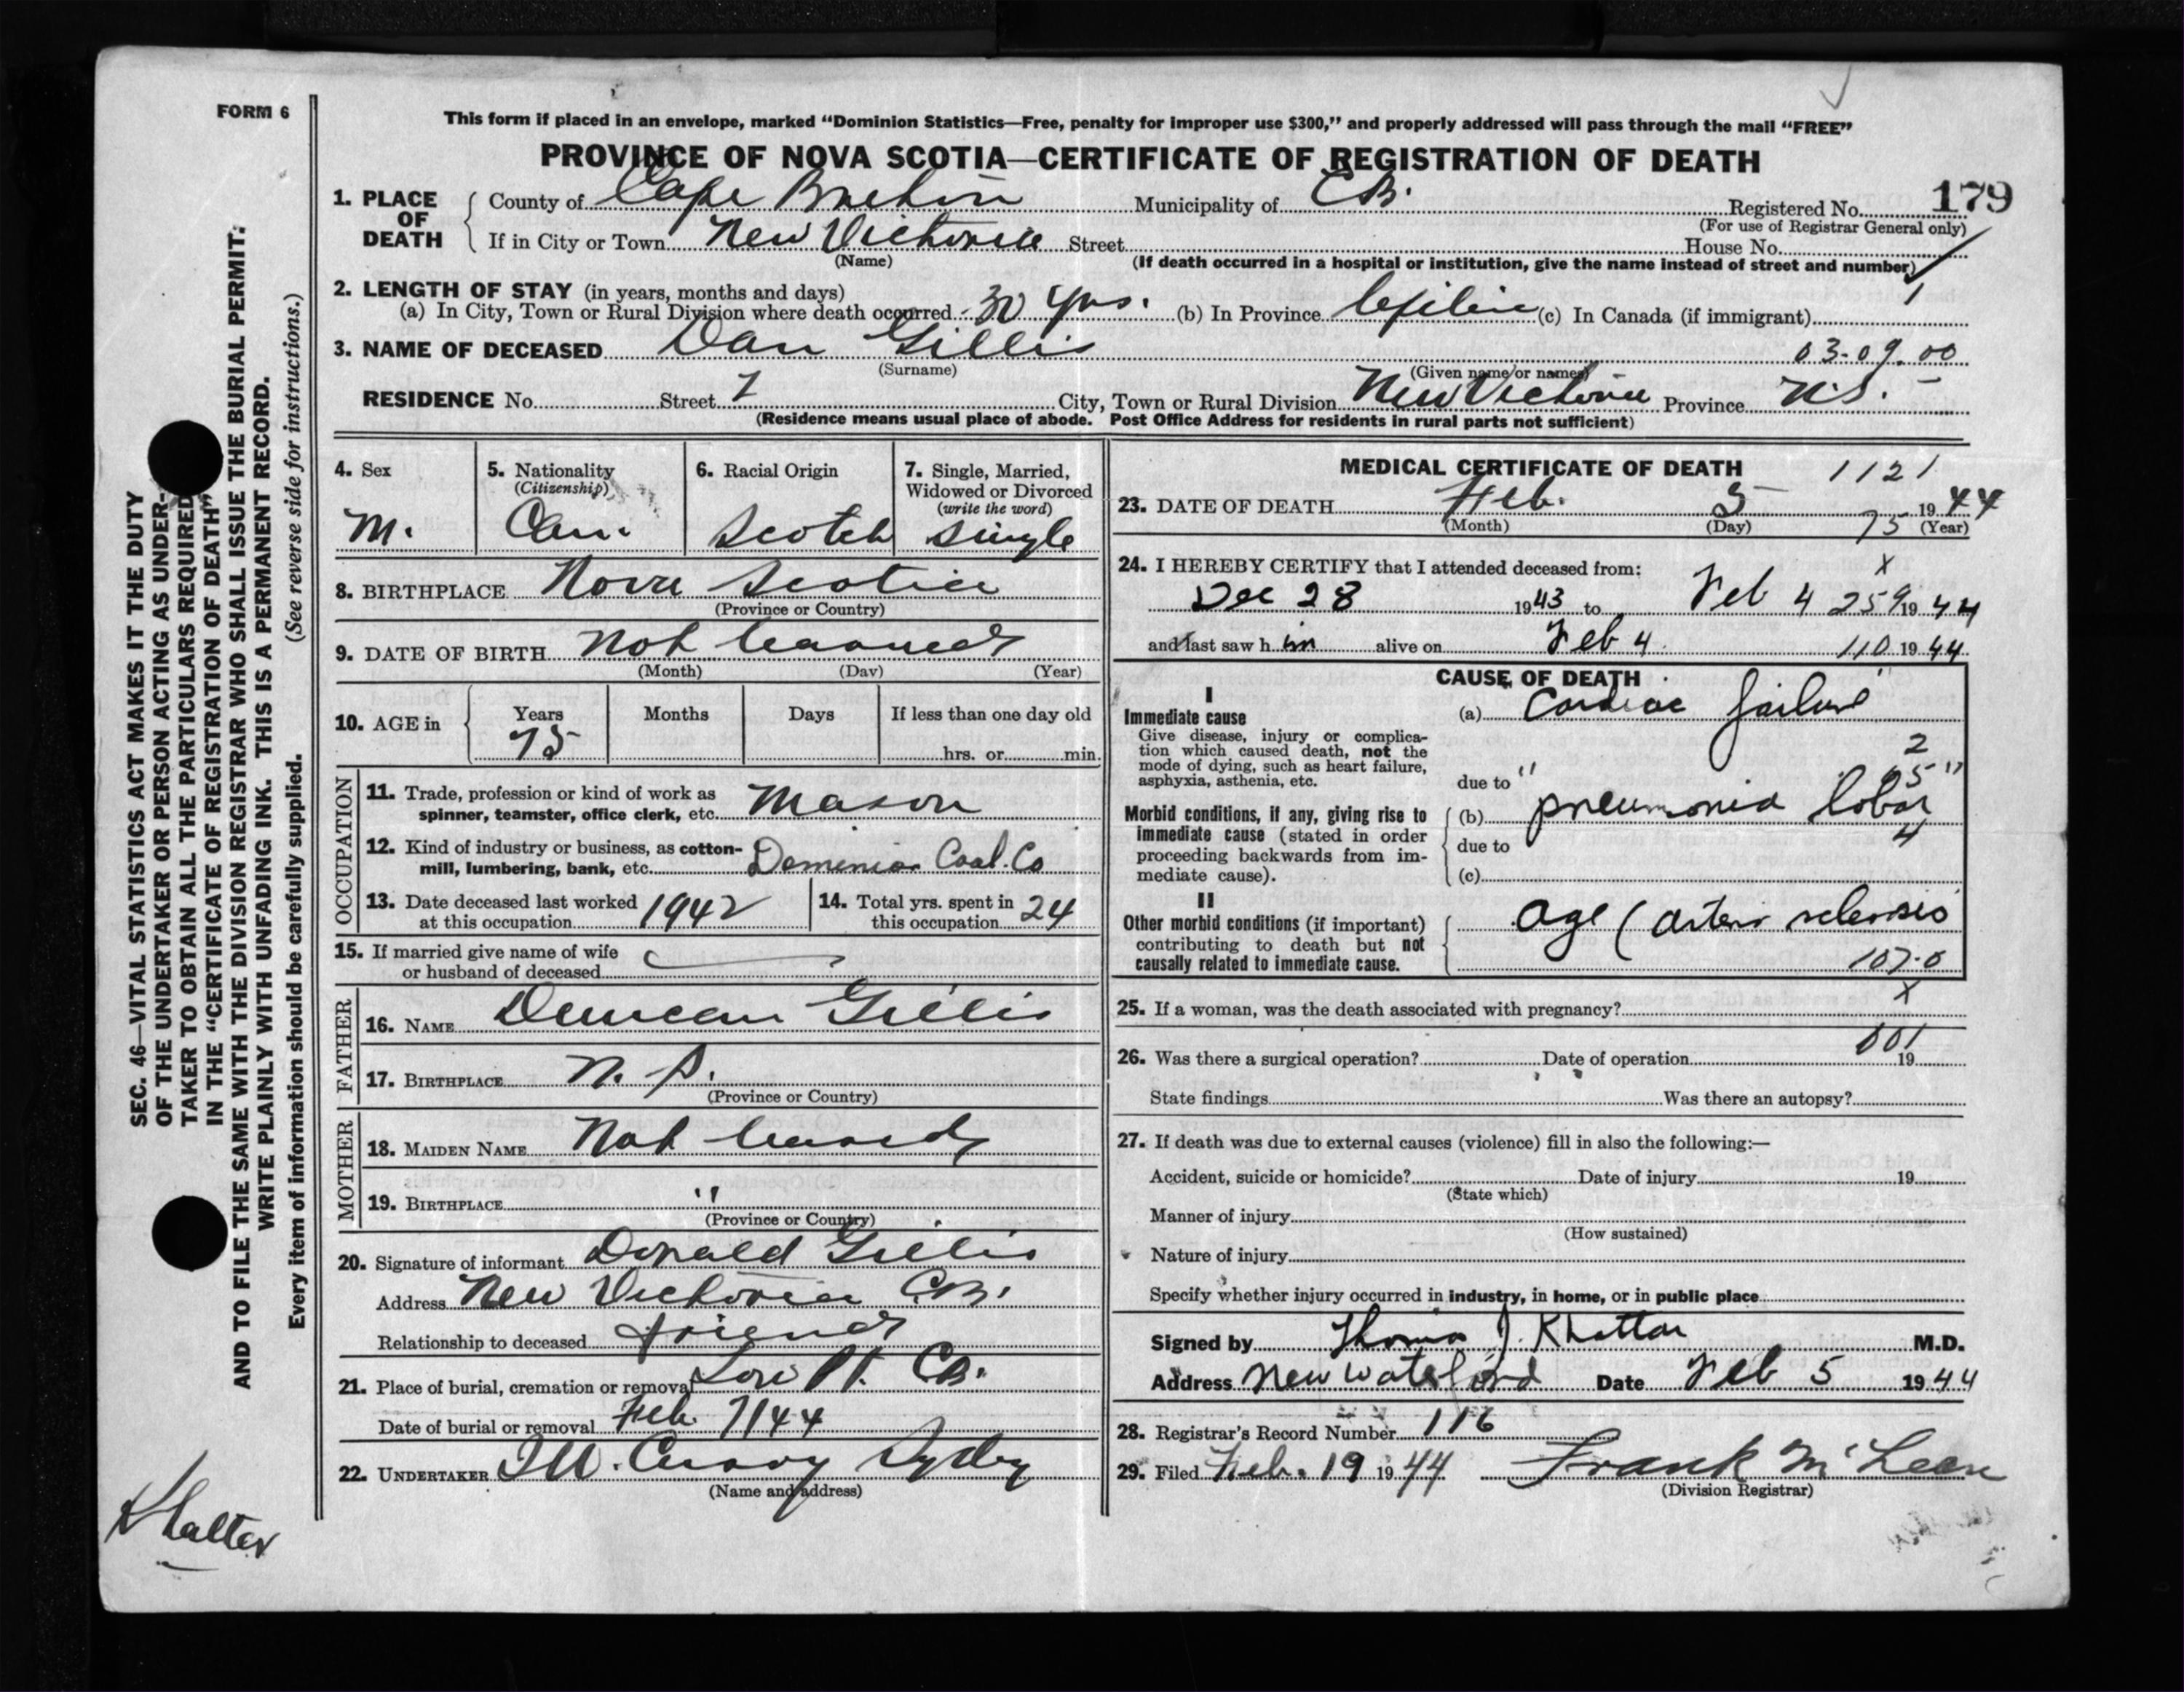 FORM 6
This form if placed in an envelope, marked “Dominion Statistics—Free, penalty for improper use $300,” and properly addressed will pass through the mail “FREE”
PROVINCE OF NOVA SCOTIA—CERTIFICATE OF REGISTRATION OF DEATH
1. PLACE OF DEATH { County of Cape Breton Municipality of C.B. Registered No. 179
(For use of Registrar General only)
If in City or Town New Victoria Street House No.
(Name) (If death occurred in a hospital or institution, give the name instead of street and number)
2. LENGTH OF STAY (in years, months and days) 1
(a) In City, Town or Rural Division where death occurred 30 yrs. (b) In Province Lifetime (c) In Canada (if immigrant)
3. NAME OF DECEASED Dan Gillis 03-09.00
(Surname) (Given name or names)
RESIDENCE No. Street City, Town or Rural Division New Victoria Province N.S.
(Residence means usual place of abode. Post Office Address for residents in rural parts not sufficient)
4. Sex M.
5. Nationality (Citizenship) Can.
6. Racial Origin Scotch
7. Single, Married, Widowed or Divorced (write the word) Single
8. BIRTHPLACE Nova Scotia
(Province or Country)
9. DATE OF BIRTH Not learned
(Month) (Day) (Year)
10. AGE in { Years 75 Months Days If less than one day old
hrs. or min.
OCCUPATION
11. Trade, profession or kind of work as
spinner, teamster, office clerk, etc. Mason
12. Kind of industry or business, as cotton-
mill, lumbering, bank, etc. Dominion Coal. Co
13. Date deceased last worked
at this occupation 1942
14. Total yrs. spent in
this occupation 24
15. If married give name of wife
or husband of deceased
FATHER
16. NAME Duncan Gillis
17. BIRTHPLACE N. S.
(Province or Country)
MOTHER
18. MAIDEN NAME Not learned
19. BIRTHPLACE "
(Province or Country)
20. Signature of informant Donald Gillis
Address New Victoria C.B.
Relationship to deceased friend
21. Place of burial, cremation or removal Low Pt. C.B.
Date of burial or removal Feb 7/44
22. UNDERTAKER Sydney
(Name and address)
MEDICAL CERTIFICATE OF DEATH 1121
23. DATE OF DEATH Feb. 5 1944
(Month) (Day) 75 (Year)
24. I HEREBY CERTIFY that I attended deceased from: x
Dec 28 1943 to Feb 4 259 1944
and last saw h im alive on Feb 4 110 1944
CAUSE OF DEATH
I
Immediate cause (a) Cardiac failure
Give disease, injury or complica-
tion which caused death, not the
mode of dying, such as heart failure,
asphyxia, asthenia, etc.
2
due to "
Morbid conditions, if any, giving rise to
immediate cause (stated in order
proceeding backwards from im-
mediate cause).
(b) pneumonia lobar
due to 4
(c)
II
Other morbid conditions (if important)
contributing to death but not
causally related to immediate cause.
age (arterio sclerosis
107.0
25. If a woman, was the death associated with pregnancy? x
26. Was there a surgical operation? Date of operation 001 19
State findings Was there an autopsy?
27. If death was due to external causes (violence) fill in also the following:—
Accident, suicide or homicide? Date of injury 19
(State which)
Manner of injury
(How sustained)
Nature of injury
Specify whether injury occurred in industry, in home, or in public place
Signed by Thomas J. Khattar M.D.
Address New Waterford Date Feb 5 1944
28. Registrar's Record Number 116
29. Filed Feb. 19 1944 Frank McLean
(Division Registrar)
SEC. 46—VITAL STATISTICS ACT MAKES IT THE DUTY
OF THE UNDERTAKER OR PERSON ACTING AS UNDER-
TAKER TO OBTAIN ALL THE PARTICULARS REQUIRED
IN THE “CERTIFICATE OF REGISTRATION OF DEATH”
AND TO FILE THE SAME WITH THE DIVISION REGISTRAR WHO SHALL ISSUE THE BURIAL PERMIT.
WRITE PLAINLY WITH UNFADING INK. THIS IS A PERMANENT RECORD.
Every item of information should be carefully supplied. (See reverse side for instructions.)
Khattar